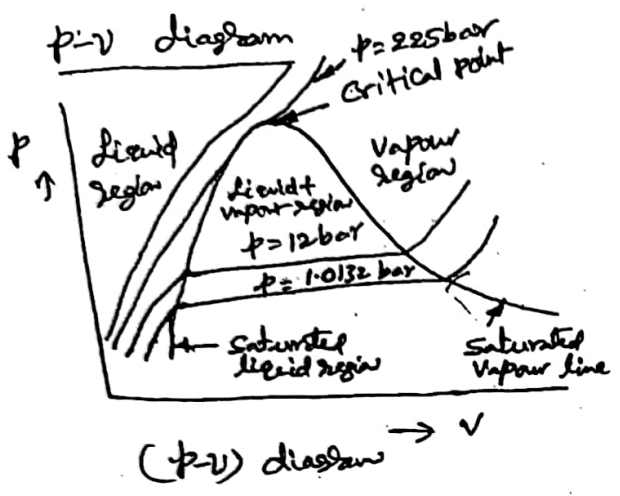 p-v diagram
p=225bar
critical point
P
Liquid
region
Vapour
region
Liquid+
vapour region
p=12bar
p=1.0132 bar
Saturated
liquid region
Saturated
Vapour line
V
(p-v) diagram